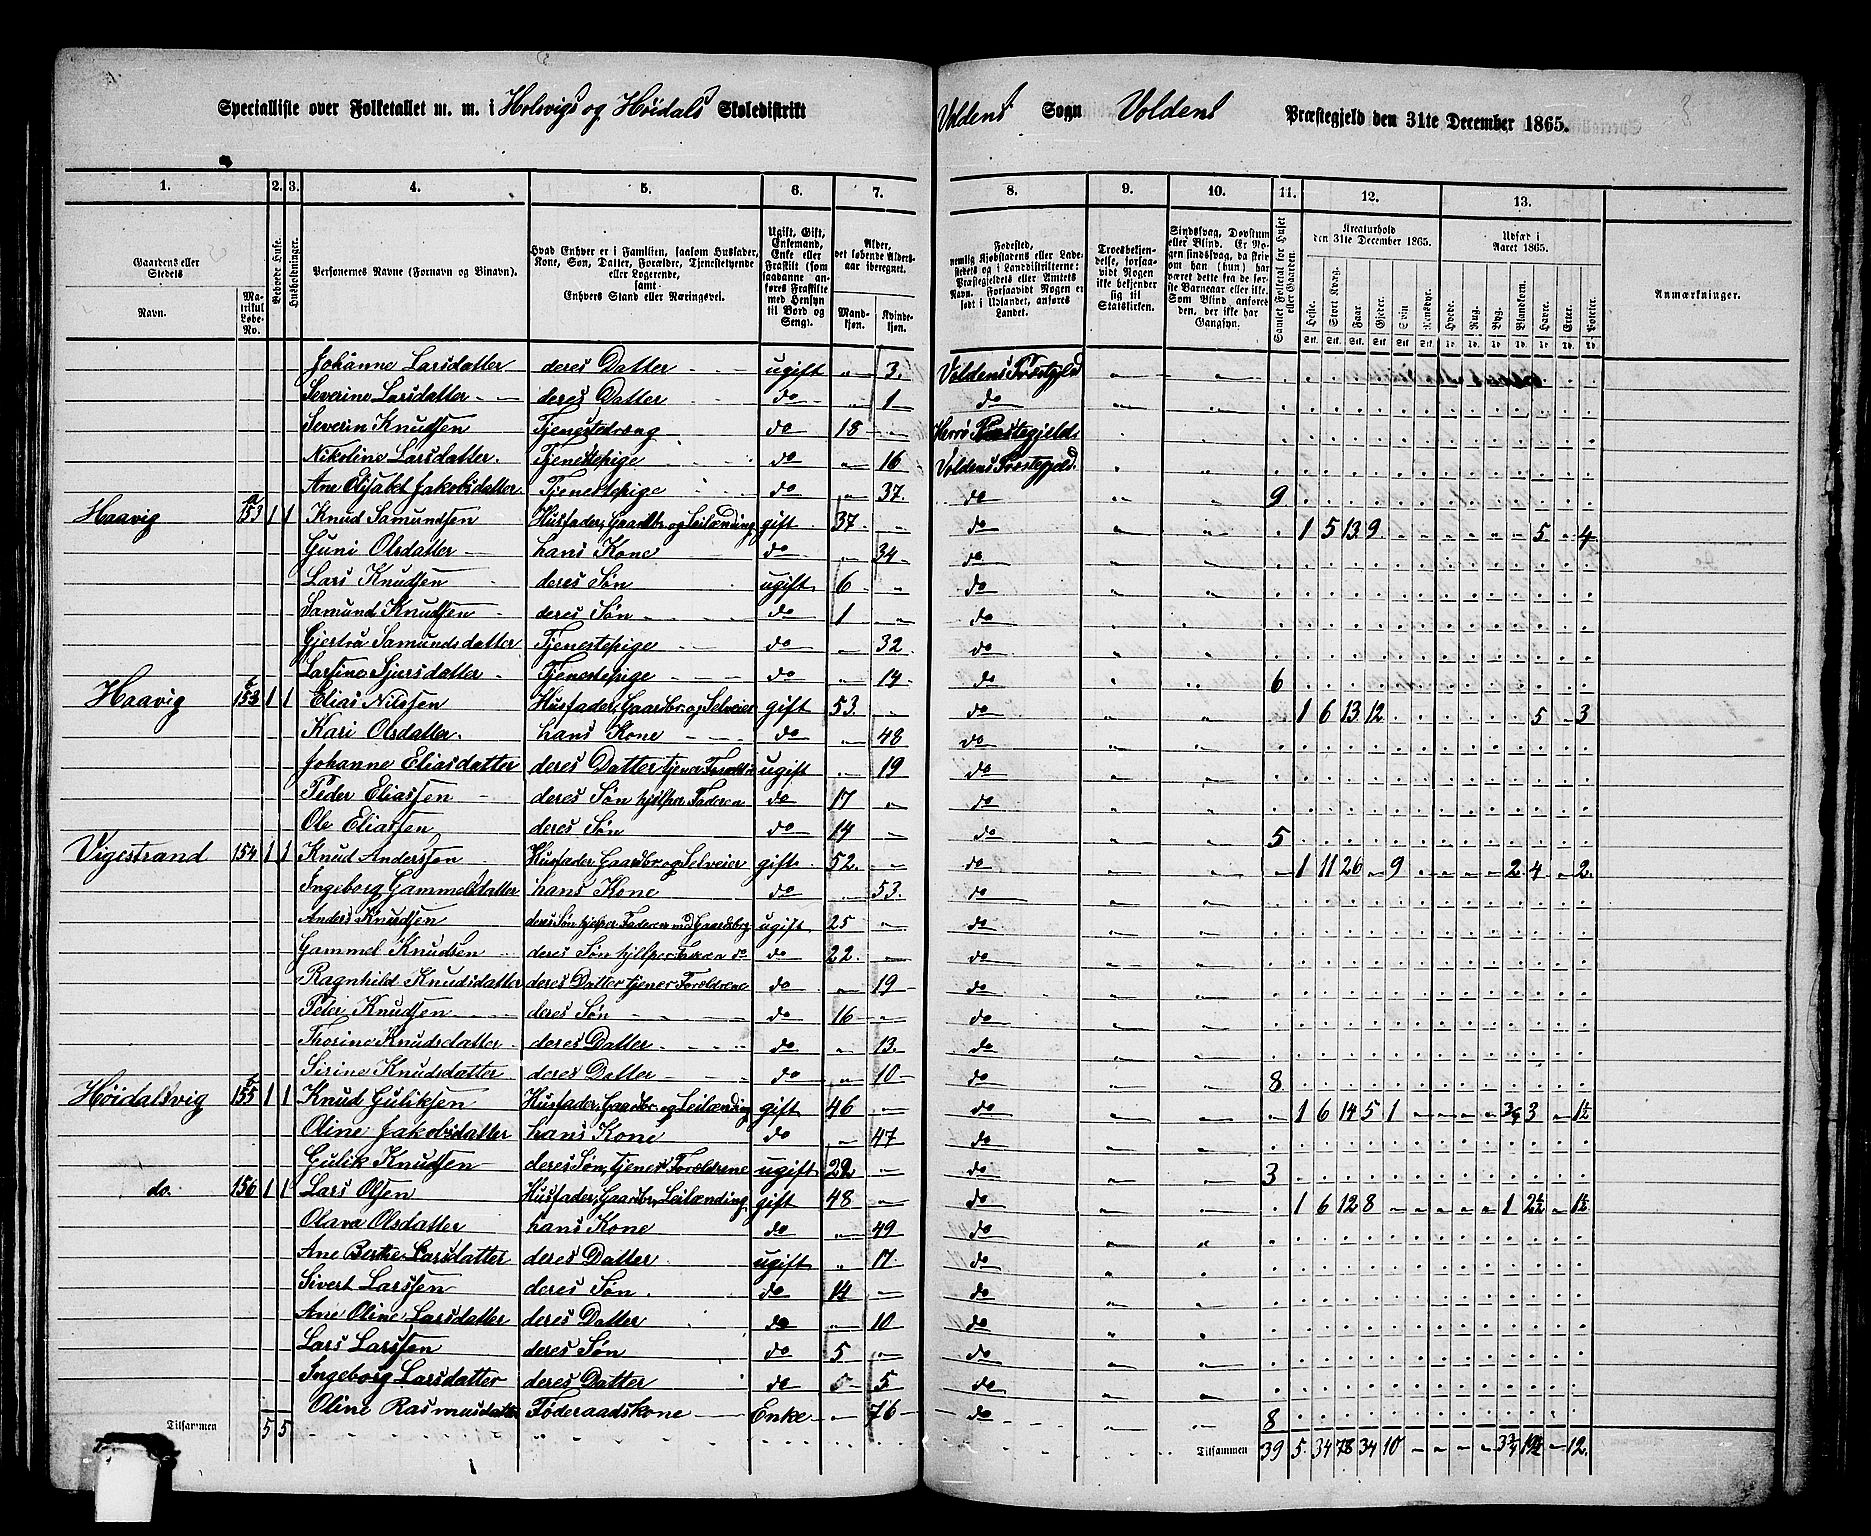 Specialliste over Folketallet m. m. i Holevigs og Høidals Skoledistrikt Voldens Sogn Voldens Præstegjeld den 31te December 1865.
1. 2. 3. 4. 5. 6. 7. 8. 9. 10. 11. 12. 13.
Gaardens eller Stedets Navn. Matrikul Løbe-No. Beboede Huse. Husholdninger. Personernes Navne (Fornavn og Binavn). Hvad Enhver er i Familien, saasom Husfader, Kone, Søn, Datter, Forældre, Tjenestetyende eller Logerende, samt Enhvers Stand eller Næringsvei. Ugift, Gift, Enkemand, Enke eller Fraskilt (som saadanne anføres Fraskilte med Hensyn til Bord og Seng). Alder, det løbende Aldersaar iberegnet. Mandkjøn. Kvindekjøn.
Fødested, nemlig Kjøbstadens eller Ladestedets og i Landdistrikterne: Præstegjeldets eller Amtets Navn. Forsaavidt Nogen er født i Udlandet, anføres Landet. Troesbekjendelse, forsaavidt Nogen ikke bekjender sig til Statskirken. Sindssvag, Døvstum eller Blind. Er Nogen sindssvag, da skrives om han (hun) har været dette fra de første Barneaar eller ikke. Som Blind anføres den, der ikke har Gangsyn. Samlet Folketal for Huset eller Gaarden. Kreaturhold den 31te December 1865. Udsæd i Aaret 1865. Anmærkninger.
Heste. Stort Kvæg. Faar. Gjeder. Svin. Rensdyr. Hvede. Rug. Byg. Blandkorn. Havre. Erter. Poteter.
Johanne Larsdatter deres Datter ugift " 3. Voldens Præstegjeld
Severine Larsdatter deres Datter do " 1 do
Severin Knudsen Tjenestedreng do 18 Herrø Præstegjelds
Nikoline Larsdatter. Tjenestepige do " 16 Voldens Præstegjeld.
Ane Elisabet Jakobsdatter Tjenestepige do " 37. do 9
Haavig 153 a 1 1 Knud Samundsen Husfader, Gaardbr. og Leilænding gift 37. do 1 5 13 9 5 4
Guni Olsdatter hans Kone do " 34 do
Lars Knudsen deres Søn ugift 6 " do
Samund Knudsen deres Søn do 1 " do
Gjertrø Samundsdatter Tjenestepige do " 32. do
Larsine Sjursdatter Tjenestepige do " 14 do 6
Haavig 153 b 1 1 Elias Nilssen Husfader, Gaardbr. og Selveier gift 53. do 1 6 13 12 5 3
Kari Olsdatter. hans Kone do " 48 do
Johanne Eliasdatter deres Datter tjener Forældre ugift " 19 do
Peder Eliassen deres Søn hjelper Faderen do 17 " do
Ole Eliassen deres Søn do 14 do 5
Vigestrand 154 1 1 Knud Anderssen Husfader, Gaardbr. og Selveier gift 52. do 1 11 26 9 2. 4 2.
Ingeborg Gammelsdatter hans Kone do 53. do
Anders Knudsen deres Søn hjelper Faderen med Gaardsbrug ugift 25 do
Gammel Knudsen deres Søn hjelper Faderen do do 22. do
Ragnhild Knudsdatter deres Datter tjener Forældrene do " 19 do
Peter Knudsen deres Søn do 16 do
Thorine Knudsdatter deres Datter do " 13. do
Sirine Knudsdatter deres Datter do " 10 do 8
Høidalsvig 155 b 1 1 Knud Guliksen Husfader, Gaardbr. og Leilænding gift 46 do 1 6 14 5 1 3/4 3 1½
Oline Jakobsdatter hans Kone do " 47 do
Gulik Knudsen deres Søn, tjener Forældrene ugift 22 do 3
do. 156 1 1 Lars Olsen Husfader, Gaardbr, Leilænding gift 48 do 1 6 12 8 1 2½ 1½
Olava Olsdatter hans Kone do " 49 do
Ane Berthe Larsdatter deres Datter ugift " 17. do
Sivert Larssen deres Søn do 14 do
Ane Oline Larsdatter deres Datter do " 10 do
Lars Larssen deres Søn do 5 do
Ingeborg Larsdatter deres Datter do 5 do
Oline Rasmusdatter Føderaadskone Enke " 76 do 8
Tilsammen 5 5 Tilsammen 39 5. 34 78 34 10 3¾ 12.